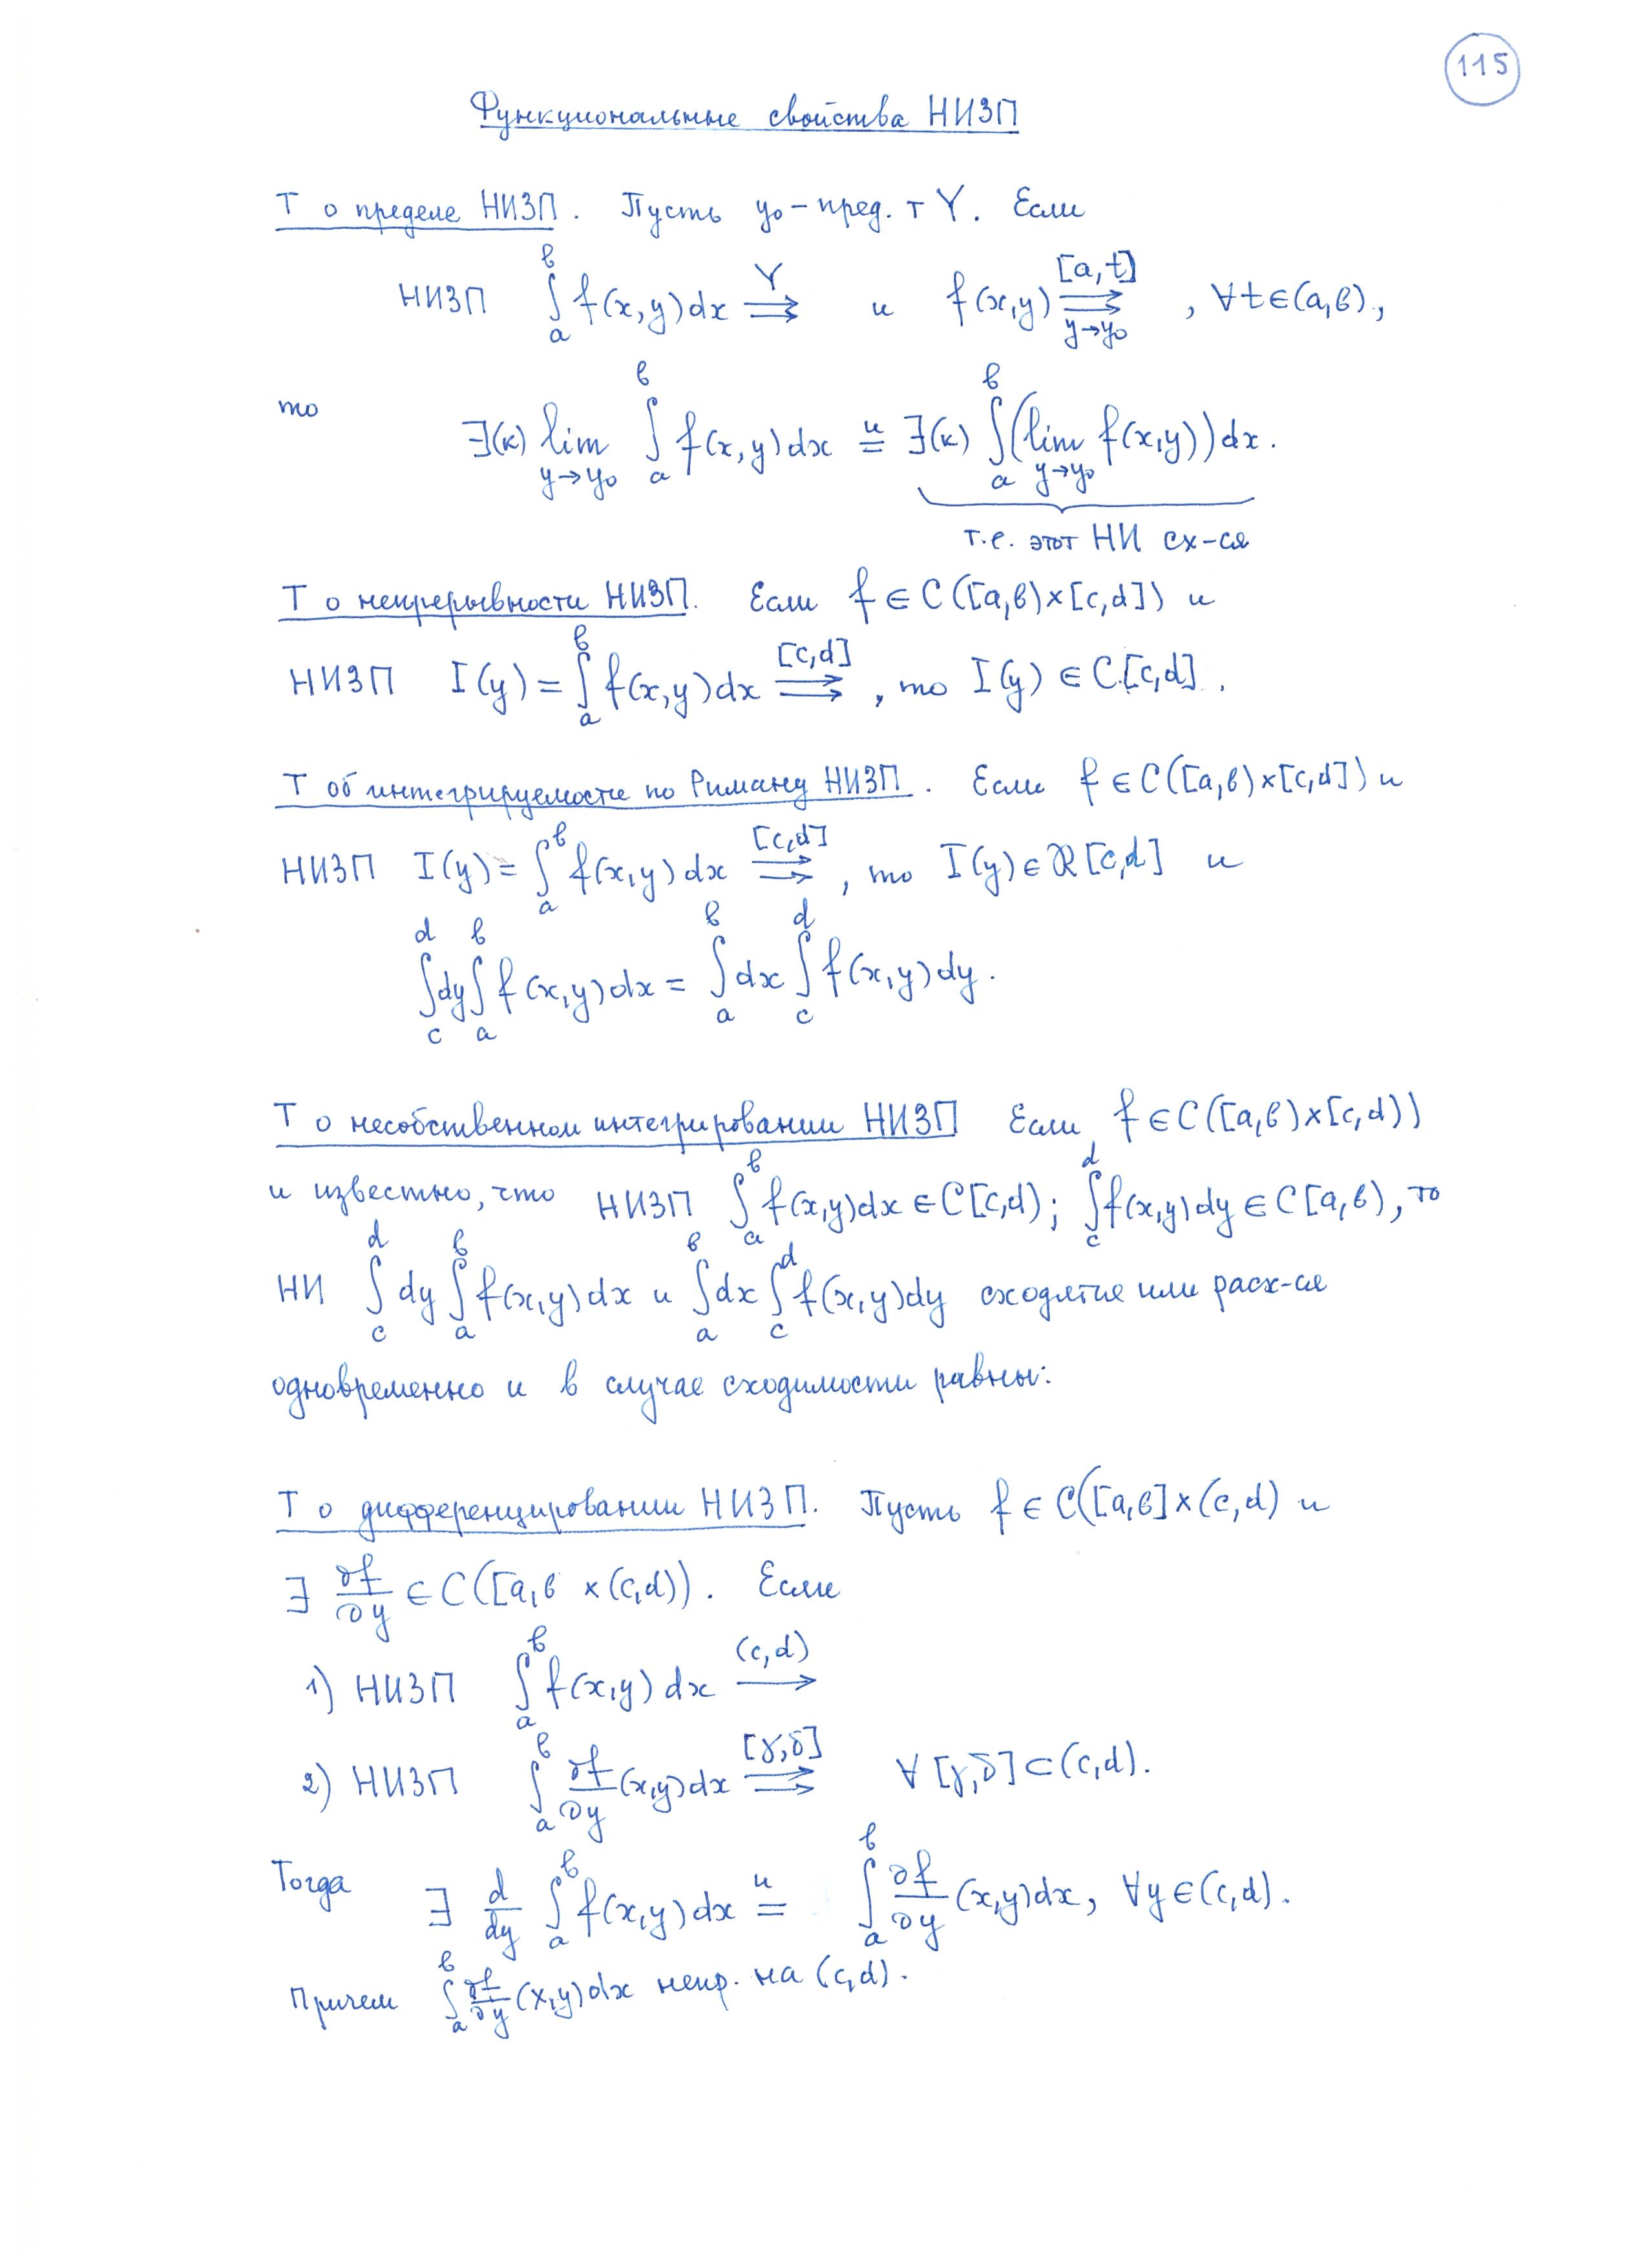 115
Функциональные свойства НИЗП
Т о пределе НИЗП. Пусть y₀ – пред. т Y. Если
НИЗП ∫ₐᵇ f(x,y)dx ⇉^Y и f(x,y) ⇉^{[a,t]}_{y→y₀}, ∀t∈(a,b),
то ∃(к) lim_{y→y₀} ∫ₐᵇ f(x,y)dx =^и ∃(к) ∫ₐᵇ (lim_{y→y₀} f(x,y))dx.
т.е. этот НИ сх-ся
Т о непрерывности НИЗП. Если f ∈ C([a,b)×[c,d]) и
НИЗП I(y) = ∫ₐᵇ f(x,y)dx ⇉^{[c,d]}, то I(y) ∈ C[c,d].
Т об интегрируемости по Риману НИЗП. Если f ∈ C([a,b)×[c,d]) и
НИЗП I(y) = ∫ₐᵇ f(x,y)dx ⇉^{[c,d]}, то I(y) ∈ ℛ[c,d] и
∫_c^d dy ∫_a^b f(x,y)dx = ∫_a^b dx ∫_c^d f(x,y)dy.
Т о несобственном интегрировании НИЗП Если f ∈ C([a,b)×[c,d))
и известно, что НИЗП ∫_a^b f(x,y)dx ∈ C[c,d); ∫_c^d f(x,y)dy ∈ C[a,b), то
НИ ∫_c^d dy ∫_a^b f(x,y)dx и ∫_a^b dx ∫_c^d f(x,y)dy сходятся или расх-ся
одновременно и в случае сходимости равны:
Т о дифференцировании НИЗП. Пусть f ∈ C([a,b]×(c,d) и
∃ ∂f/∂y ∈ C([a,b ×(c,d)). Если
1) НИЗП ∫_a^b f(x,y)dx →^{(c,d)}
2) НИЗП ∫_a^b ∂f/∂y (x,y)dx ⇉^{[γ,δ]} ∀ [γ,δ] ⊂ (c,d).
Тогда ∃ d/dy ∫_a^b f(x,y)dx =^и ∫_a^b ∂f/∂y (x,y)dx, ∀y∈(c,d).
Причем ∫_a^b ∂f/∂y (x,y)dx непр. на (c,d).